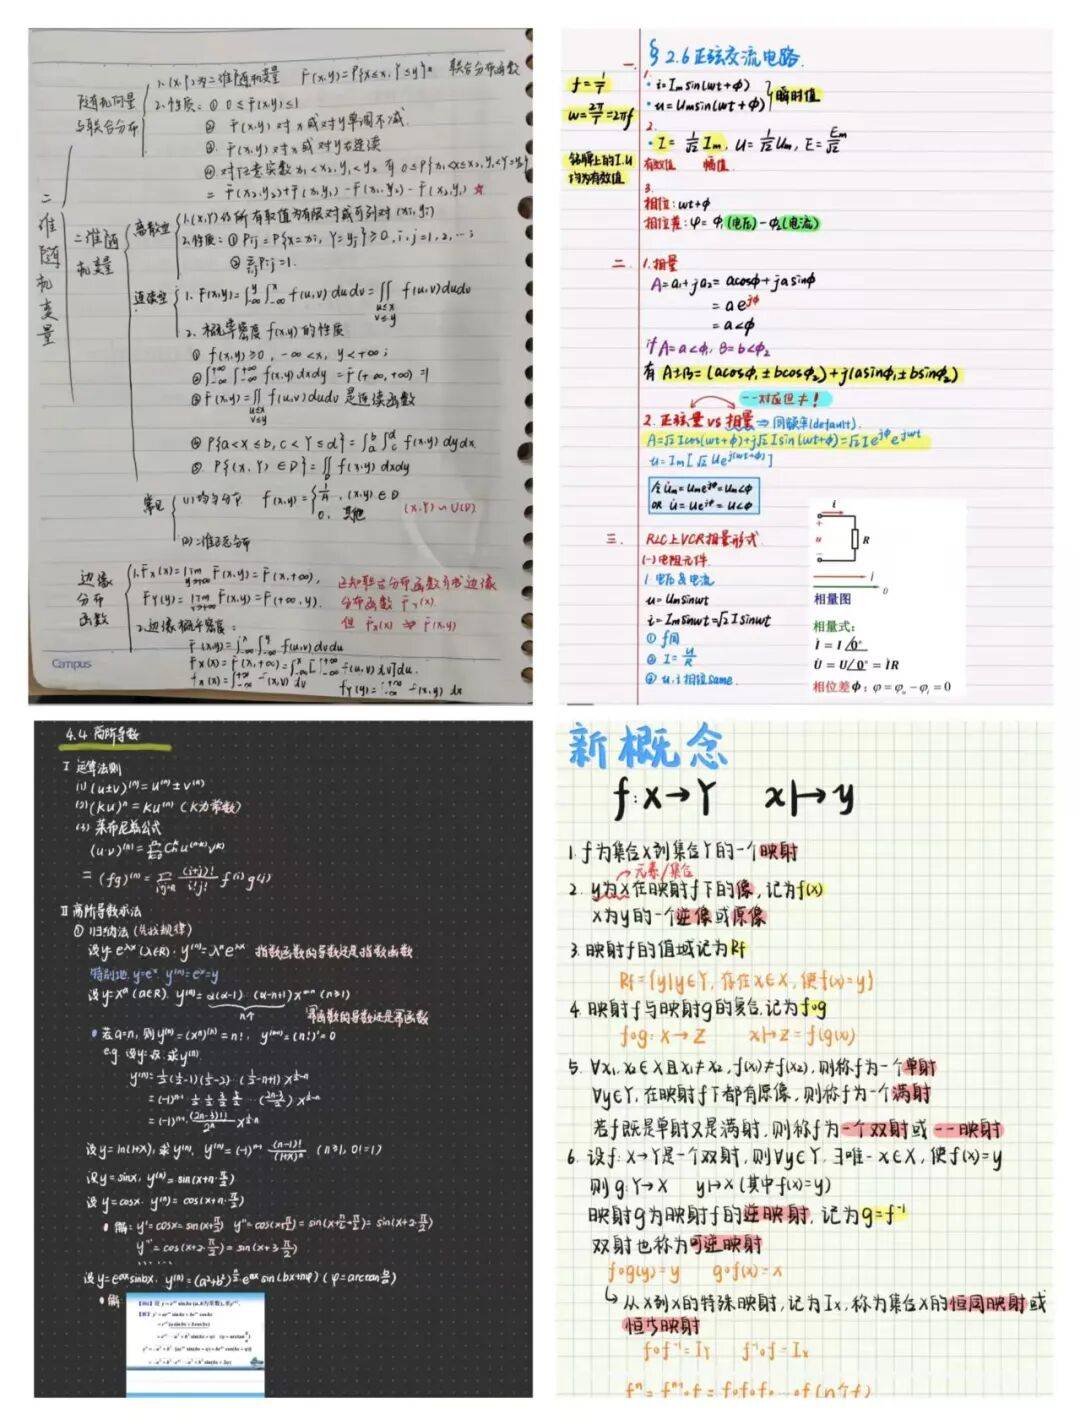 1. (X,Y)为二维随机变量 F(x,y)=P{X≤x,Y≤y}. 联合分布函数
随机向量
与联合分布
2.性质: ① 0≤F(x,y)≤1
② F(x,y)对x或对y单调不减.
③ F(x,y)对x或对y右连续
④ 对任意实数x₁<x₂,y₁<y₂,有0≤P{x₁<X≤x₂,y₁<Y≤y₂}
= F(x₂,y₂)+F(x₁,y₁)-F(x₁,y₂)-F(x₂,y₁) ☆
二维随机变量
二维随机变量
离散型
1.(X,Y)的所有取值为有限对或可列对(xi,yj)
2.性质: ① Pij=P{X=xi, Y=yj}≥0, i,j=1,2,…
② ΣPij=1.
连续型
1. F(x,y)=∫_{-∞}^{y}∫_{-∞}^{x} f(u,v)dudv=∬ f(u,v)dudv
u≤x
v≤y
2. 概率密度 f(x,y)的性质
① f(x,y)≥0, -∞<x, y<+∞;
② ∫_{-∞}^{+∞}∫_{-∞}^{+∞} f(x,y)dxdy = F(+∞,+∞)=1
③ F(x,y)=∬f(u,v)dudv是连续函数
u≤x
v≤y
④ P{a<X≤b,c<Y≤d}=∫_a^b∫_c^d f(x,y)dydx
⑤ P{(X,Y)∈D}=∬_D f(x,y)dxdy
常见
(1)均匀分布 f(x,y)={1/A, (x,y)∈D
0, 其他
(X,Y)~U(D)
(2)二维正态分布
边缘
分布
函数
1. Fx(x)=lim_{y→+∞} F(x,y)=F(x,+∞),
FY(y)=lim_{x→+∞} F(x,y)=F(+∞,y).
已知联合分布函数可求边缘
分布函数
但 Fx(x) ⇏ F(x,y)
2.边缘概率密度:
F(x,y)=∫_{-∞}^{x}∫_{-∞}^{y} f(u,v)dudv
Fx(x)=F(x,+∞)=∫_{-∞}^{x}[∫_{-∞}^{+∞} f(u,v)dv]du.
fx(x)=∫_{-∞}^{+∞} f(x,v)dv fY(y)=∫_{-∞}^{+∞} f(x,y)dx
Campus
§2.6正弦交流电路.
一.
f=1/T
ω=2π/T=2πf
铭牌上的I.U
均为有效值
1.
· i=Im sin(ωt+φ)
· u=Um sin(ωt+φ)
瞬时值
2.
· I=1/√2 Im, U=1/√2 Um, E=Em/√2
有效值 幅值
3.
相位: ωt+φ
相位差: φ=φ₁(电压)-φ₂(电流)
二. 1.相量
A=a₁+ja₂= acosφ+jasinφ
= ae^{jφ}
= a∠φ
if A=a∠φ₁, B=b∠φ₂
有 A±B=(acosφ₁±bcosφ₂)+j(asinφ₁±bsinφ₂)
一一对应但≠!
2. 正弦量 vs 相量 ⇒ 同频率(default).
A=√2Icos(ωt+φ)+j√2Isin(ωt+φ)=√2Ie^{jφ}e^{jωt}
u=Im[√2Ue^{j(ωt+φ)}]
令U̇m=Ume^{jφ}=Um∠φ
OR U̇=Ue^{jφ}=U∠φ
三. RLC上VCR相量形式.
(一)电阻元件.
1 电压&电流
u=Umsinωt
i=Imsinωt=√2Isinωt
① f同
② I=U/R
③ u,i相位same.
i
+
u
-
R
相量图
相量式:
İ=I/0°
U̇=U/0°=İR
相位差φ: φ=φu-φi=0
4.4 高阶导数
Ⅰ 运算法则
(1) (u±v)⁽ⁿ⁾=u⁽ⁿ⁾±v⁽ⁿ⁾
(2) (ku)ⁿ=ku⁽ⁿ⁾ (k为常数)
(3) 莱布尼兹公式
(u·v)⁽ⁿ⁾=Σ_{k=0}^{n} C_n^k u⁽ⁿ⁻ᵏ⁾v⁽ᵏ⁾
=(fg)⁽ⁿ⁾=Σ_{i+j=n} (i+j)!/(i!j!) f⁽ⁱ⁾g⁽ʲ⁾
Ⅱ 高阶导数求法
① 归纳法(先找规律)
设y=e^{λx}(λ∈R). y⁽ⁿ⁾=λⁿe^{λx} 指数函数的导数还是指数函数
特别地. y=eˣ. y⁽ⁿ⁾=eˣ=y
设y=xᵅ(α∈R). y⁽ⁿ⁾=α(α-1)···(α-n+1)x^{α-n}(n≥1)
n个
幂函数的导数还是幂函数
• 若α=n, 则y⁽ⁿ⁾=(xⁿ)⁽ⁿ⁾=n!, y⁽ⁿ⁺¹⁾=(n!)'=0
e.g. 设y=√x,求y⁽ⁿ⁾.
y⁽ⁿ⁾=½(½-1)(½-2)···(½-n+1)x^{½-n}
=(-1)ⁿ⁻¹·½·½·3/2···((2n-3)/2)x^{½-n}
=(-1)ⁿ⁻¹·(2n-3)!!/2ⁿ x^{½-n}
设y=ln(1+x),求y⁽ⁿ⁾. y⁽ⁿ⁾=(-1)ⁿ⁻¹ (n-1)!/(1+x)ⁿ (n≥1, 0!=1)
设y=sinx, y⁽ⁿ⁾=sin(x+n·π/2)
设y=cosx. y⁽ⁿ⁾=cos(x+n·π/2)
• 解: y'=cosx=sin(x+π/2) y''=cos(x+π/2)=sin(x+π/2+π/2)=sin(x+2·π/2)
y'''=cos(x+2·π/2)=sin(x+3·π/2)
······
设y=e^{ax}sinbx. y⁽ⁿ⁾=(a²+b²)^{n/2}·e^{ax}sin(bx+nφ)(φ=arctan b/a)
• 解:
新概念
f:X→Y x↦y
1. f为集合X到集合Y的一个映射
元素/集合
2. y为x在映射f下的像,记为f(x)
x为y的一个逆像或原像
3. 映射f的值域记为Rf
Rf={y|y∈Y, 存在x∈X, 使f(x)=y}
4. 映射f与映射g的复合,记为f∘g
f∘g: X→Z x↦z=f(g(x))
5. ∀x₁,x₂∈X且x₁≠x₂,f(x₁)≠f(x₂),则称f为一个单射
∀y∈Y,在映射f下都有原像,则称f为一个满射
若f既是单射又是满射,则称f为一个双射或一一映射
6. 设f:X→Y是一个双射,则∀y∈Y,∃唯一x∈X,使f(x)=y
则g:Y→X y↦x(其中f(x)=y)
映射g为映射f的逆映射,记为g=f⁻¹
双射也称为可逆映射
f∘g(y)=y g∘f(x)=x
↳ 从X到X的特殊映射,记为Ix,称为集合X的恒同映射或
恒步映射
f∘f⁻¹=IY f⁻¹∘f=Ix
fⁿ=fⁿ⁻¹∘f=f∘f∘f∘…∘f(n个f)